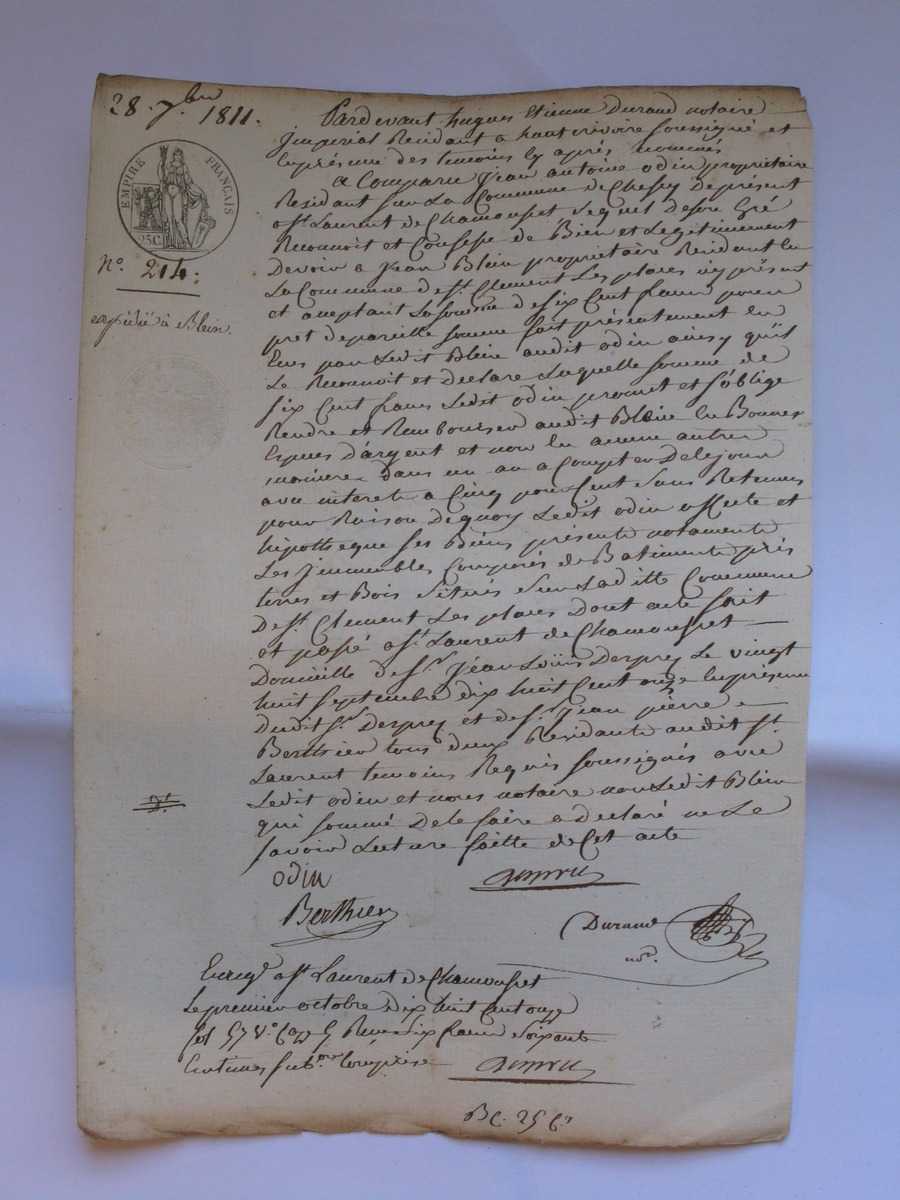 28. 7bre 1811.
EMPIRE FRANÇAIS
25C
N.o 214.
expédié à Blein.
Pardevant hugues Etienne Durand notaire
Jmperial Residant a hauterivoire soussigné et
En présence des temoins cy après nommés
a Comparu Jean antoine odin propriétaire
Residant sur La Commune de Chessy De présent
a St. Laurent de Chamousset Lequel de son Gré
Reconnoit et Confesse de Bien et Legitimement
Devoir a Jean Blein propriétaire Residant En
La Commune de St. Clement Les places icy présent
et acceptant La somme de six Cent francs pour
pret de pareille somme fait présentement En
Ecus par Ledit Blein audit odin ainsy qu'il
Le Reconnoit et declare Laquelle somme de
six Cent francs Ledit odin promet et s'oblige
Rendre et Rembourser audit Blein En Bonnes
Especes d'argent et non En aucune autre
maniere dans un an a Compter De ce jour
avec interet a Cinq pour Cent sans Retenues
pour Raison De quoy Ledit odin affecte et
hipotheque ses Biens présents notamment
Les Jmmeubles Composés de Batiments prés
terres et Bois situés sur Laditte Commune
De St. Clement Les places Dont acte fait
et passé a St. Laurent de Chamousset —
Domicille de Sr. Jean Loüis Desprey Le vingt
huit septembre dix huit Cent onze En présence
dudit Sr. Desprey et de Sr. Jean pierre
Berthier tous deux Residants audit St.
Laurent temoins Requis soussignés avec
Ledit odin et nous notaire non Ledit Blein
qui sommé de le faire a déclaré ne Le
savoir Lecture faitte de Cet acte
odin
Berthier
Durand
not.
Enregé. a St. Laurent de Chamousset
Le premier octobre dix huit Cent onze
fol 57 V.o Case 5 Reçu six francs soixante
Centimes subon. Comprise